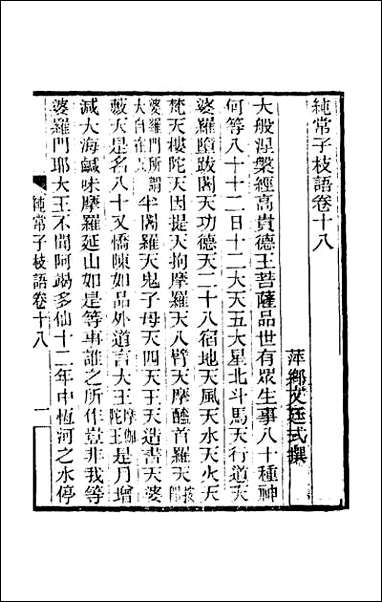 純常子枝語卷十八
萍鄉文廷式撰
大般湼槃經高貴德王菩薩品世有眾生事八十種神
何等八十十二日十二大天五大星北斗馬天行道天
婆羅墮跋闍天功德天二十八宿地天風天水天火天
梵天樓陀天因提天拘摩羅天八臂天摩醯首羅天按卽
婆羅門所謂大自在天半闍羅天鬼子母天四天王天造書天婆
藪天是名八十又憍陳如品外道言大王摩伽陀王是月增
減大海鹹味摩羅延山如是等事誰之所作豈非我等
婆羅門耶大王不聞阿竭多仙十二年中恆河之水停
純常子枝語卷十八
一